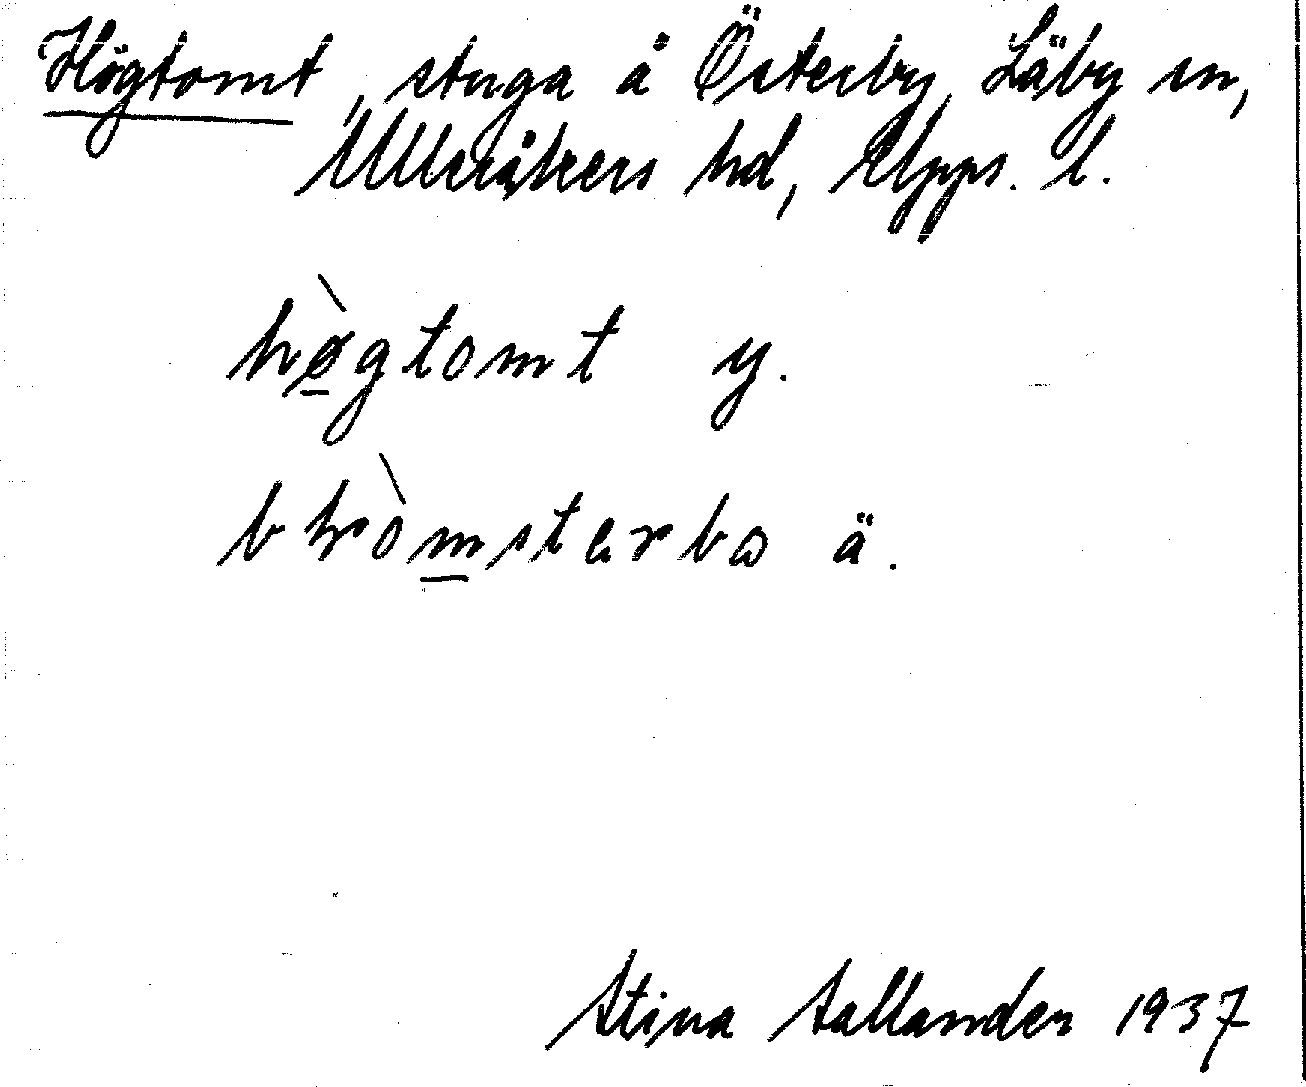 Högtomt, stuga å Österby, Läby sn,
Ulleråkers hd, Upps. l.
hø̀gtomt y.
bkròmsterbo ä.
Stina Sallander 1937